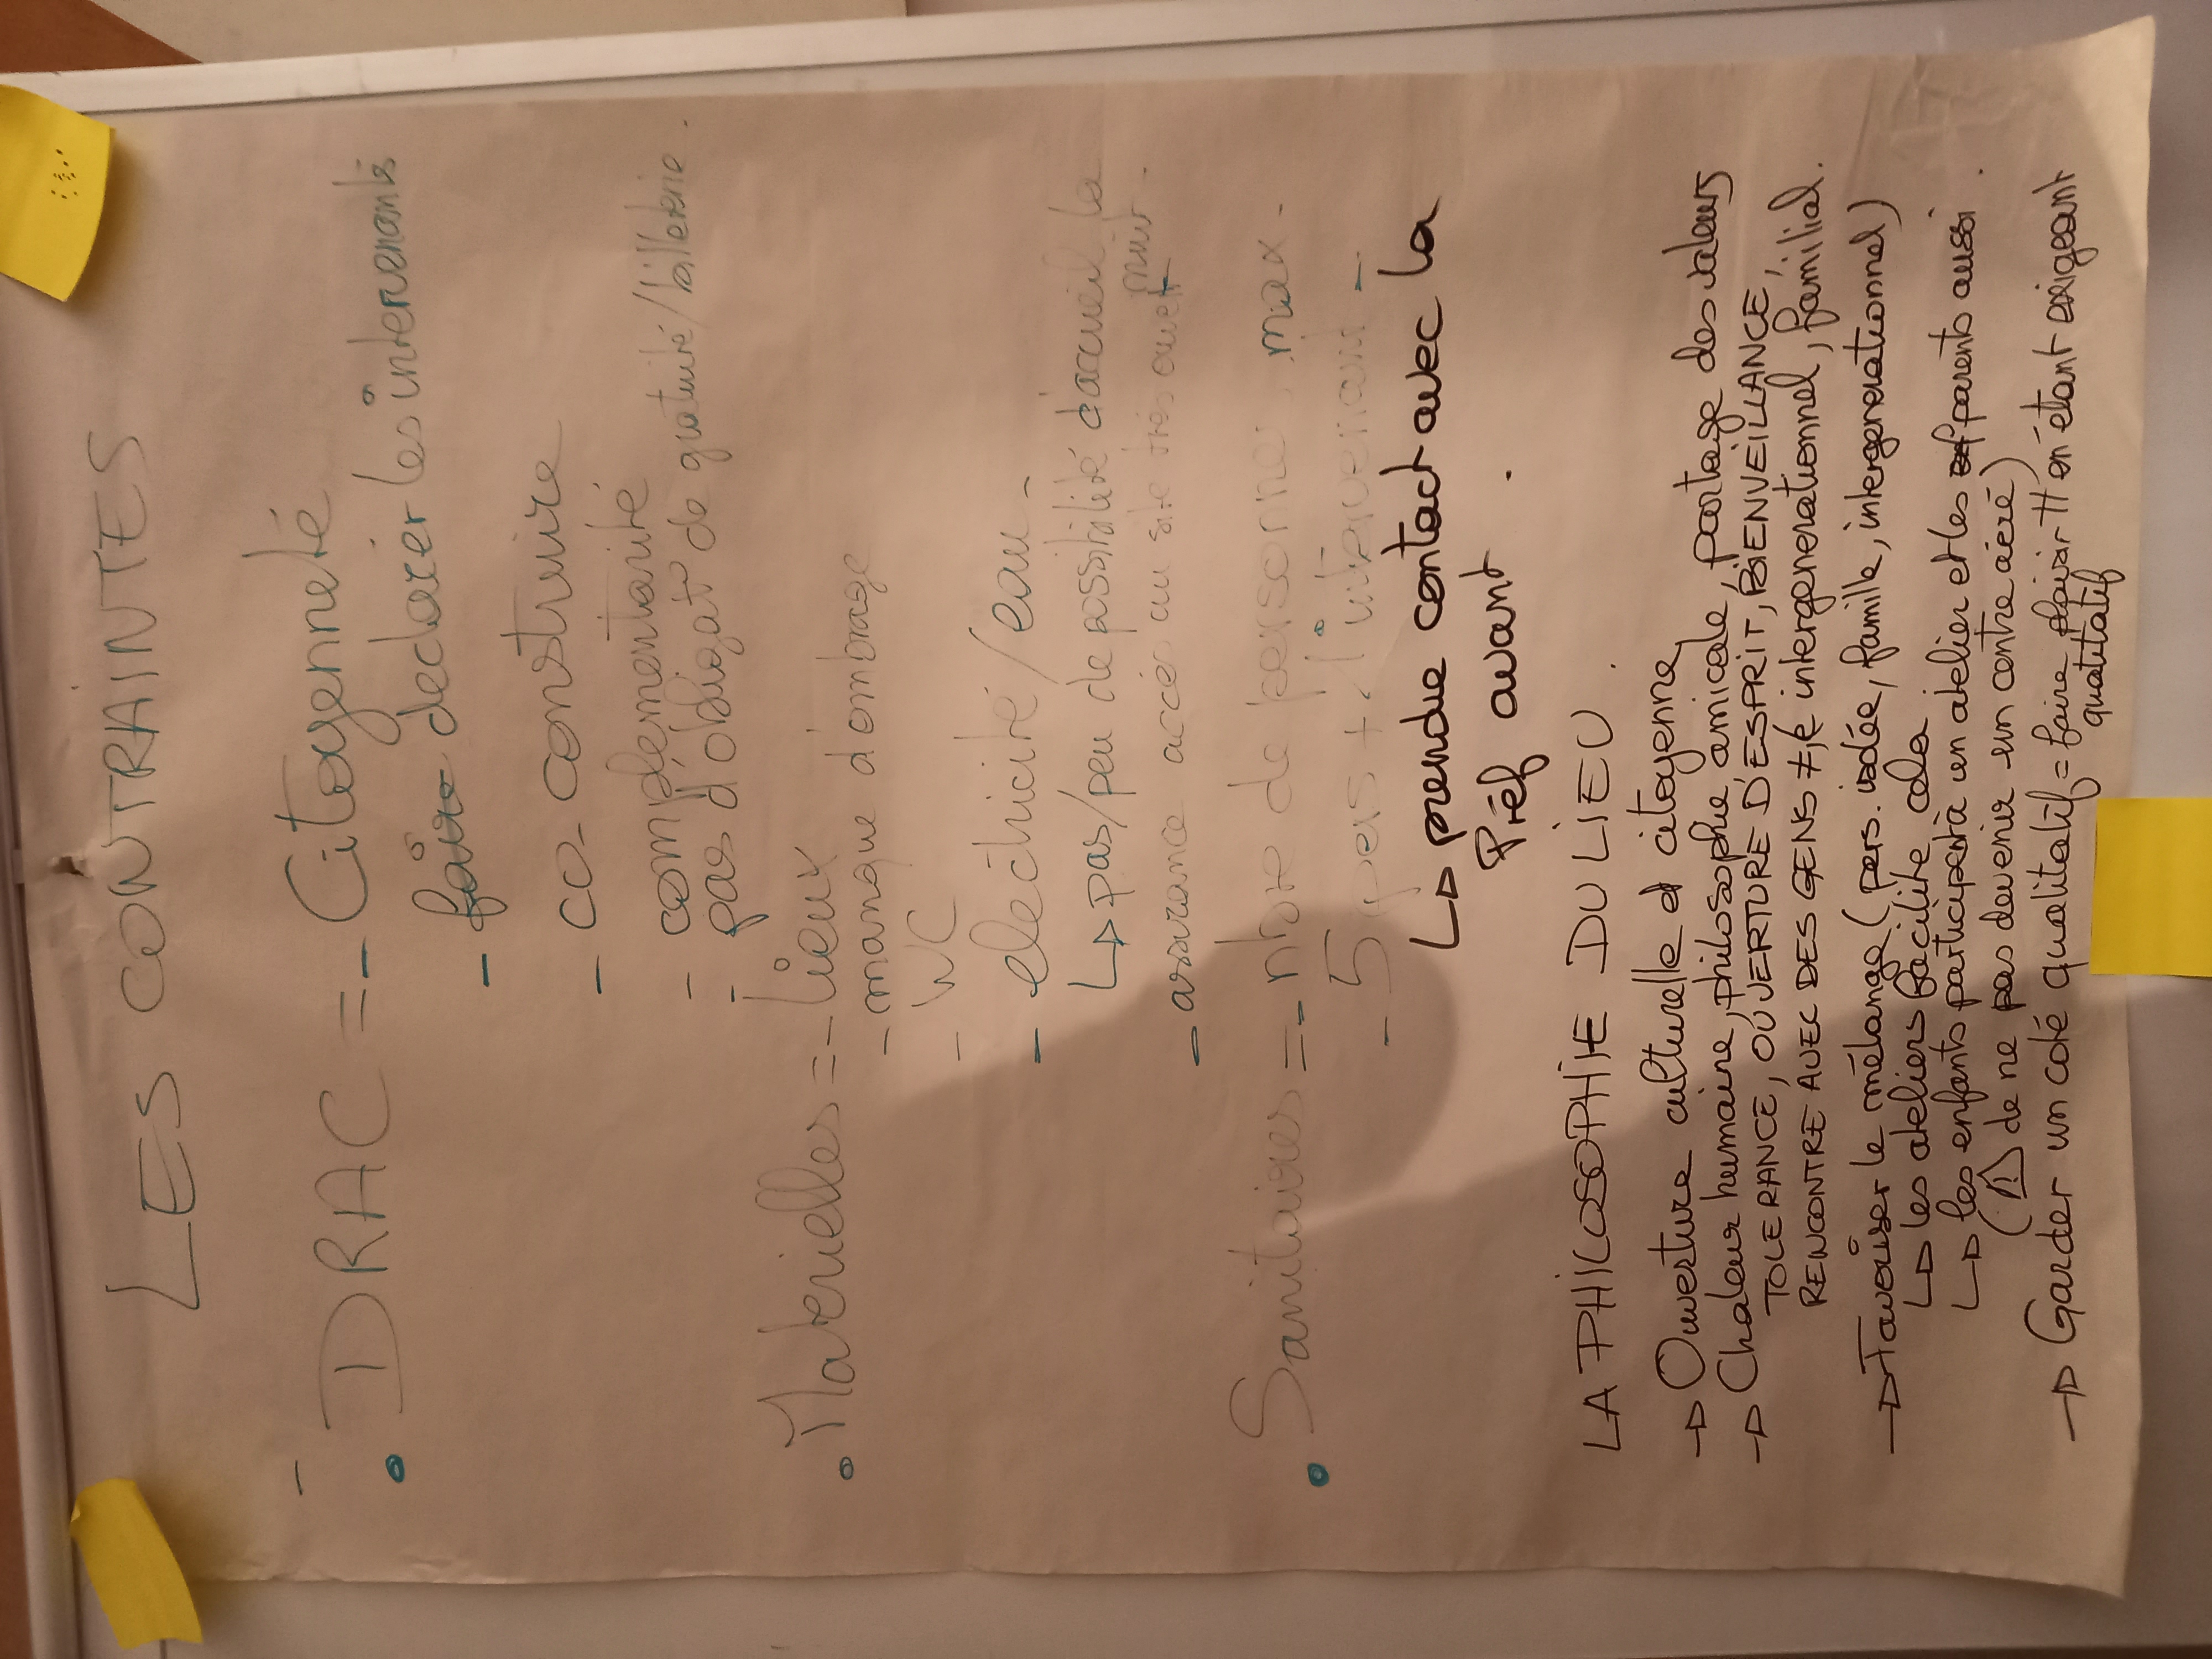 LES CONTRAINTES
• DRAC = - Citoyenneté
- faire declarer les intervenants
- co-construire
- complémentarité
- pas d'obligat° de gratuité/billeterie.
• Materielles = - Lieux
- manque d'ombrage
- WC
- electricité/eau -
↳ pas/peu de possibilité d'accueil la nuit -
- assurance accès au site très ouvert
• Sanitaires = - nbre de personnes max -
- 5 pers + 1 intervenant -
↳ prendre contact avec la
Préf avant.
LA PHILOSOPHIE DU LIEU.
→ Ouverture culturelle et citoyenne
→ Chaleur humaine, philosophe, amicale, partage des valeurs
TOLERANCE, OUVERTURE D'ESPRIT, BIENVEILLANCE,
RENCONTRE AVEC DES GENS ≠, intergenerationnel, familial.
→ Favoriser le mélange (pers. isolée, famille, intergenerationnel)
↳ les ateliers facilite cela
↳ les enfants participent à un atelier et les parents aussi.
(⚠ de ne pas devenir un centre aéré)
→ Garder un coté qualitatif = faire plaisir tt en étant exigeant
qualitatif